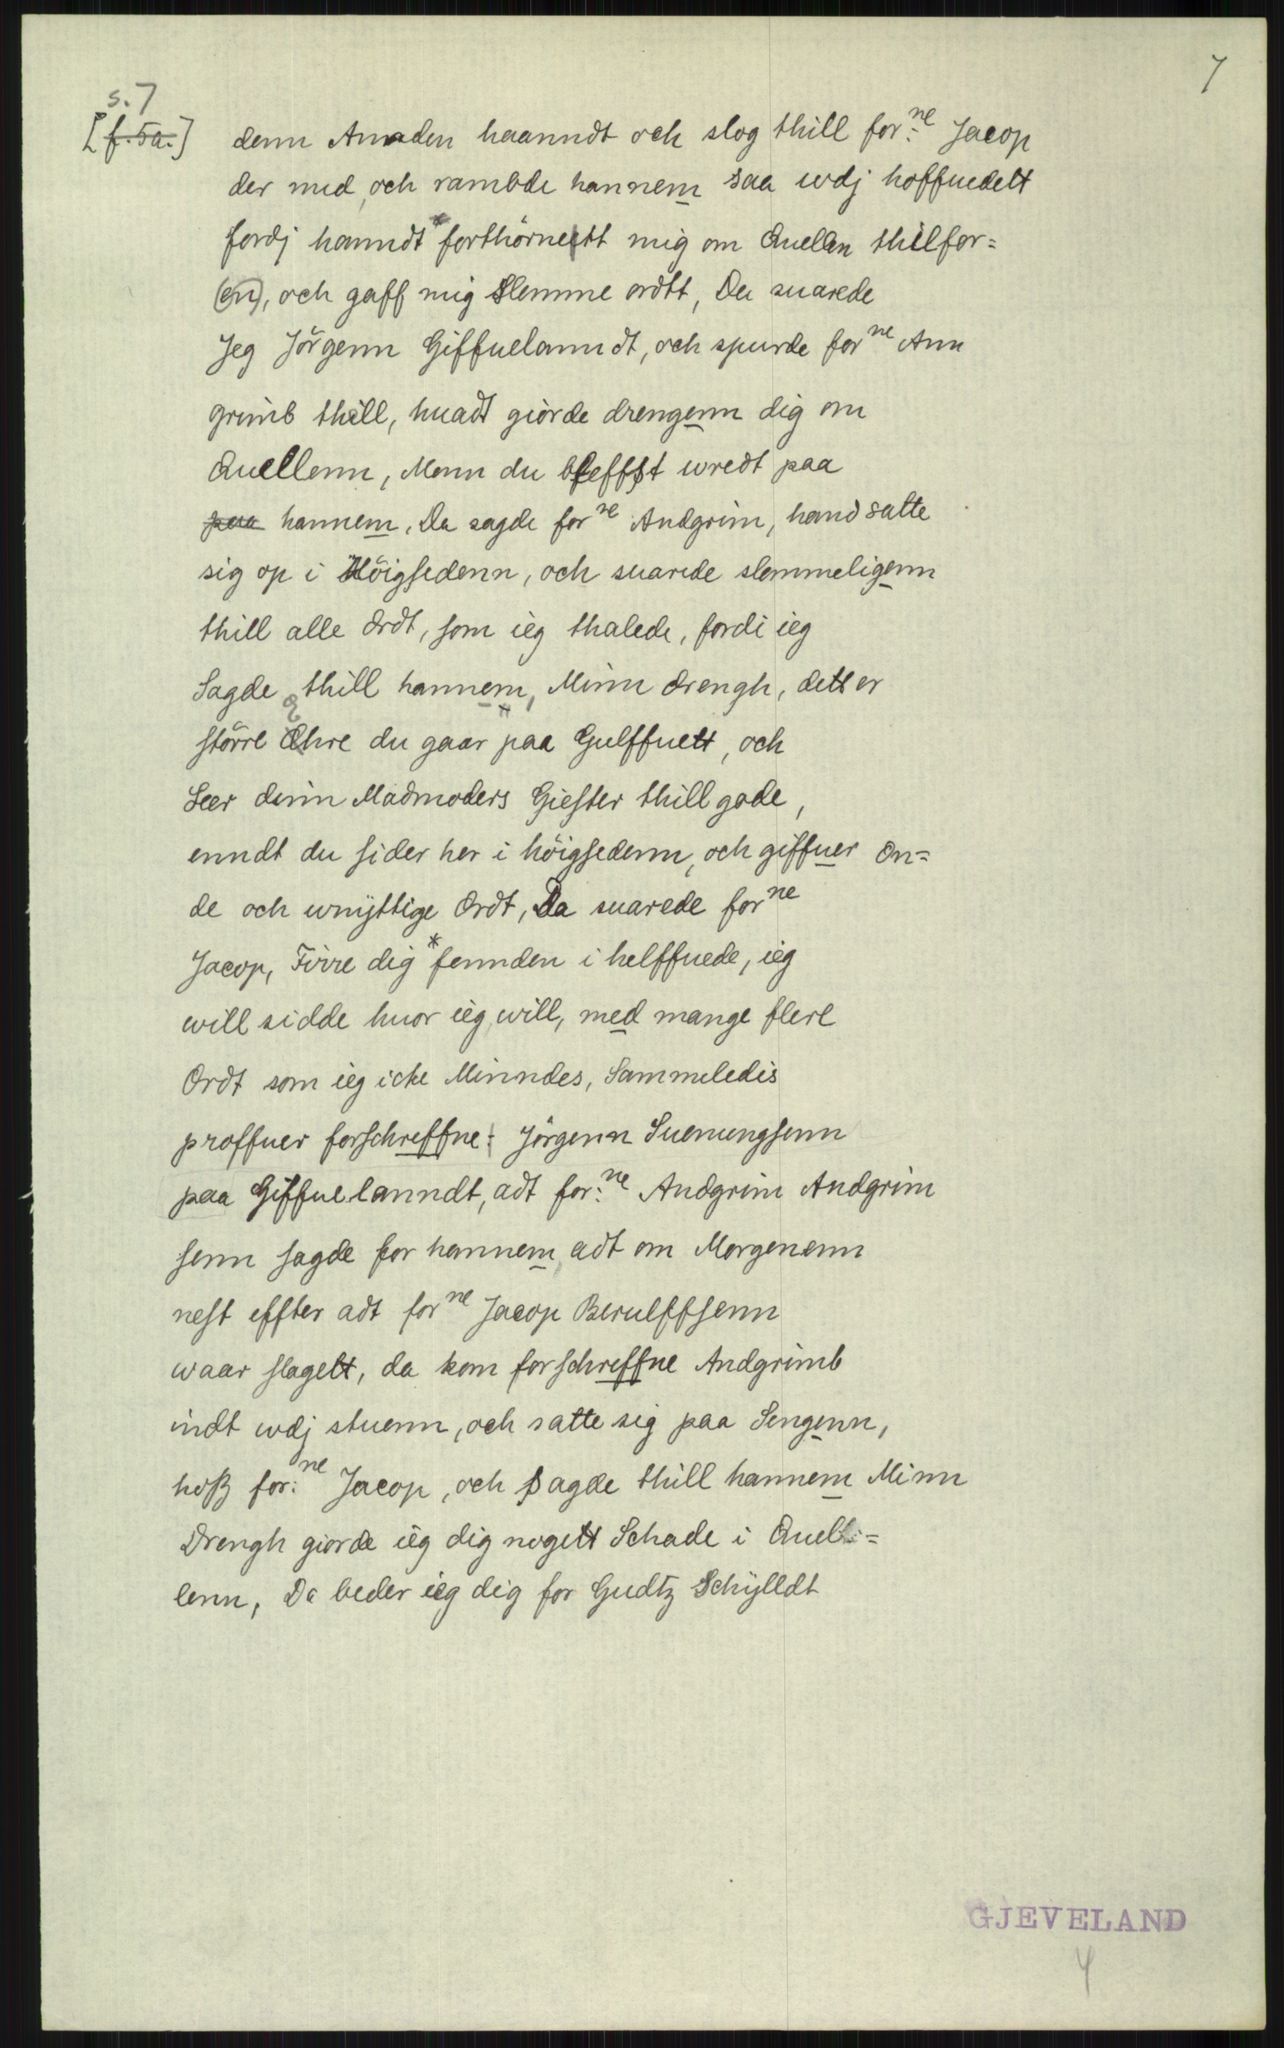 7
s. 7
[f. 5a.] denn Anaden haanndt och slog thill for:ne Jacop
der med, och rambde hannem saa wdj hoffuedett
fordj hanndt *forthörnett mig om Quellen thilfor=
(en), och gaff mig Slemme ordtt, Da suarede
Jeg Jörgenn Giffuelanndt, och spurde forne Ann
grimb thill, huadt giorde drengenn dig om
Quellenn, Menn du bleffst wredt paa
paa hannem, Da sagde forne Andgrim, hand satte
sig op i Höigsedenn, och suarede slemmeligenn
thill alle Ordt, som ieg thalede, fordi ieg
Sagde thill hannem, Minn drengh, dett er
större Ehre du gaar paa Gulffuett, och
Seer dinn Madmoders Giester thill gode,
enndt du sider her i höigsedenn, och giffuer On=
de och wnyttige Ordt, Da suarede forne
Jacop, Firre dig *fennden i helffuede, ieg
will sidde huor ieg will, med mange flere
Ordt som ieg icke Minndes, Sammeledis
proffuer forschreffne: Jörgenn Suenungsenn
paa Giffuelanndt, adt for:ne Andgrim Andgrim
senn sagde for hannem, adt om Morgenenn
nest effter adt forne Jacop Berulffsenn
waar slagett, da kom forschreffne Andgrimb
indt wdj stuenn, och satte sig paa Sengenn,
hoß for:ne Jacop, och sagde thill hannem Minn
Drengh giorde ieg dig nogett Schade i Quell=
lenn, Da beder ieg dig for Gudtz Schylldt
GJEVELAND
4